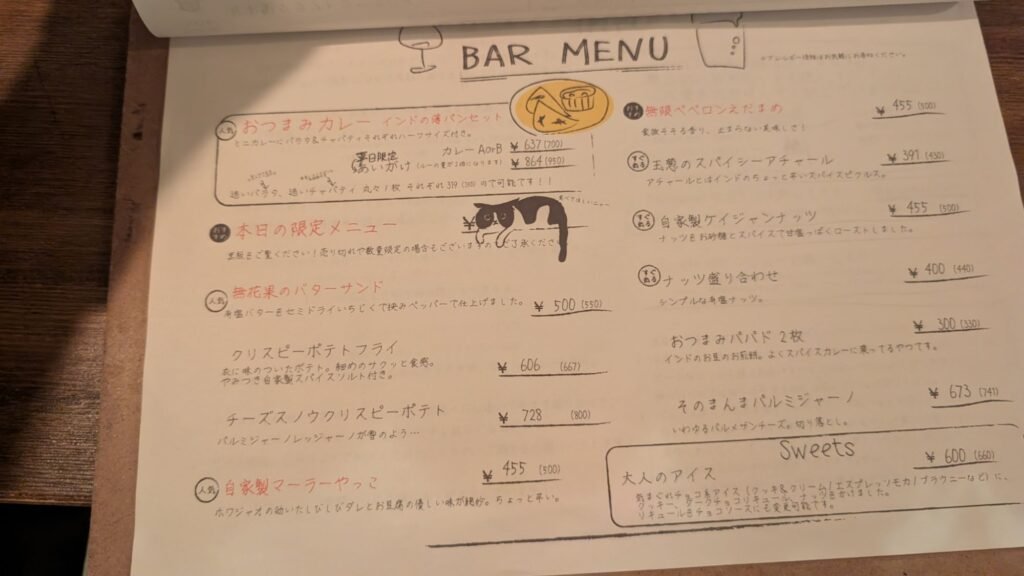 BAR MENU
※アレルギー情報はお気軽にお尋ねください。
人気 おつまみカレー インドの薄パンセット
ミニカレーにパラタ&チャパティそれぞれハーフサイズ付き。
カレー AorB ¥ 637 (700)
平日限定
あいがけ (ルーの量が2倍になります) ¥ 864 (950)
追いパラタ、追いチャパティ 丸々1枚 それぞれ319 (350) ので可能です!!
本日の限定メニュー ¥
食べてほしいニャー
黒板をご覧ください!売り切れや数量限定の場合もございますのでご了承ください
人気 無花果のバターサンド
有塩バターをセミドライいちじくで挟みペッパーで仕上げました。 ¥ 500 (550)
クリスピーポテトフライ
衣に味のついたポテト。細めのサクッと食感。
やみつき自家製スパイスソルト付き。
¥ 606 (667)
チーズスノウクリスピーポテト ¥ 728 (800)
パルミジャーノレッジャーノが雪のよう…
人気 自家製マーラーやっこ ¥ 455 (500)
ホワジャオの効いたしびしびダレとお豆腐の優しい味が絶妙。ちょっと辛い。
無限ペペロンえだまめ ¥ 455 (500)
食欲そそる香り、止まらない美味しさ!
すぐ出る 玉葱のスパイシーアチャール ¥ 391 (430)
アチャールとはインドのちょっと辛いスパイスピクルス。
すぐ出る 自家製ケイジャンナッツ ¥ 455 (500)
ナッツをお砂糖とスパイスで甘塩っぱくローストしました。
すぐ出る ナッツ盛り合わせ ¥ 400 (440)
シンプルな有塩ナッツ。
おつまみパパド 2枚 ¥ 300 (330)
インドのお豆のお煎餅。よくスパイスカレーに乗ってるやつです。
そのまんまパルミジャーノ ¥ 673 (741)
いわゆるパルメザンチーズ。切り落とし。
Sweets
大人のアイス ¥ 600 (660)
気まぐれチョコ系アイス(クッキー&クリーム/エスプレッソモカ/ブラウニーなど)に、
リキュールをチョコソースにも変更可能です。